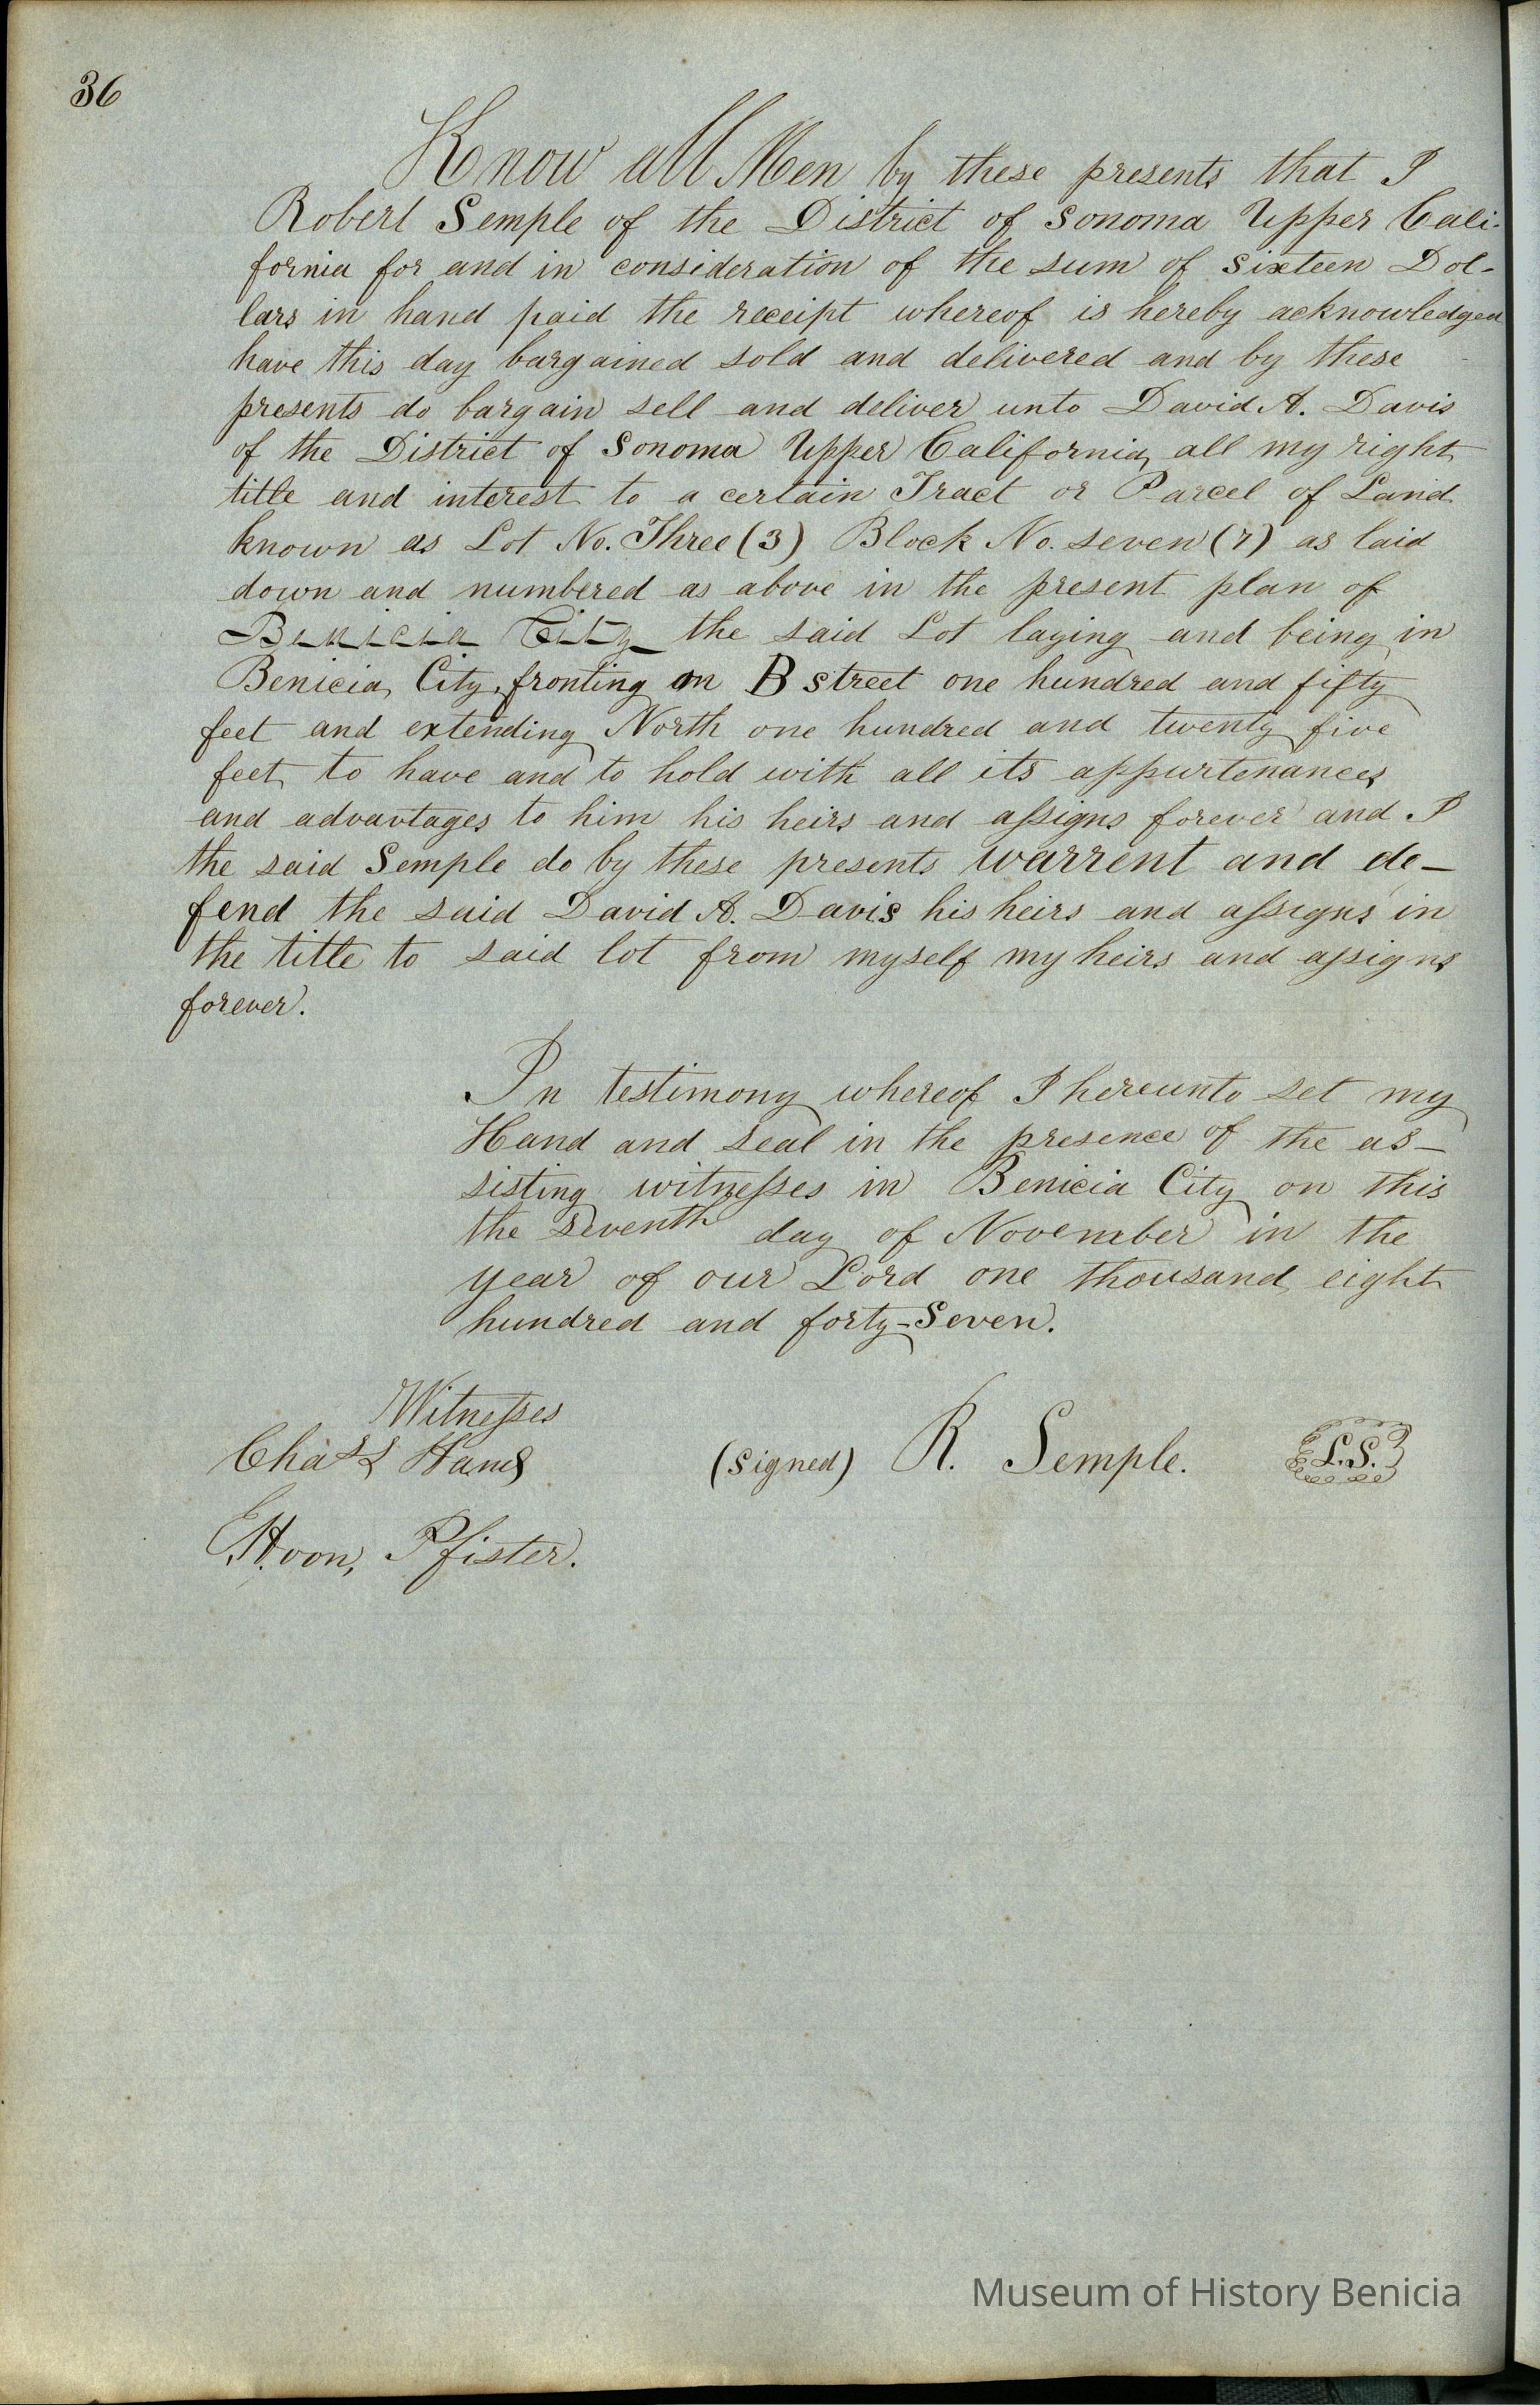 36
Know all Men by these presents that I
Robert Semple of the District of Sonoma Upper Cali-
fornia for and in consideration of the sum of Sixteen Dol-
lars in hand paid the receipt whereof is hereby acknowledged
have this day bargained sold and delivered and by these
presents do bargain sell and deliver unto David A. Davis
of the District of Sonoma Upper California, all my right
title and interest to a certain Tract or Parcel of Land
known as Lot No. Three (3) Block No. seven (7) as laid
down and numbered as above in the present plan of
Benicia City the said Lot laying and being in
Benicia City, fronting on B street one hundred and fifty
feet and extending North one hundred and twenty five
feet, to have and to hold with all its appurtenances
and advantages to him his heirs and assigns forever and I
the said Semple do by these presents warrent and de-
fend the said David A. Davis his heirs and assigns in
the title to said lot from myself my heirs and assigns
forever.
In testimony whereof I hereunto set my
Hand and seal in the presence of the as-
sisting witnesses in Benicia City on this
the Seventh day of November in the
year of our Lord one thousand eight
hundred and forty-Seven.
Witnesses
(Signed) R. Semple. L.S.
Pfister.
Museum of History Benicia